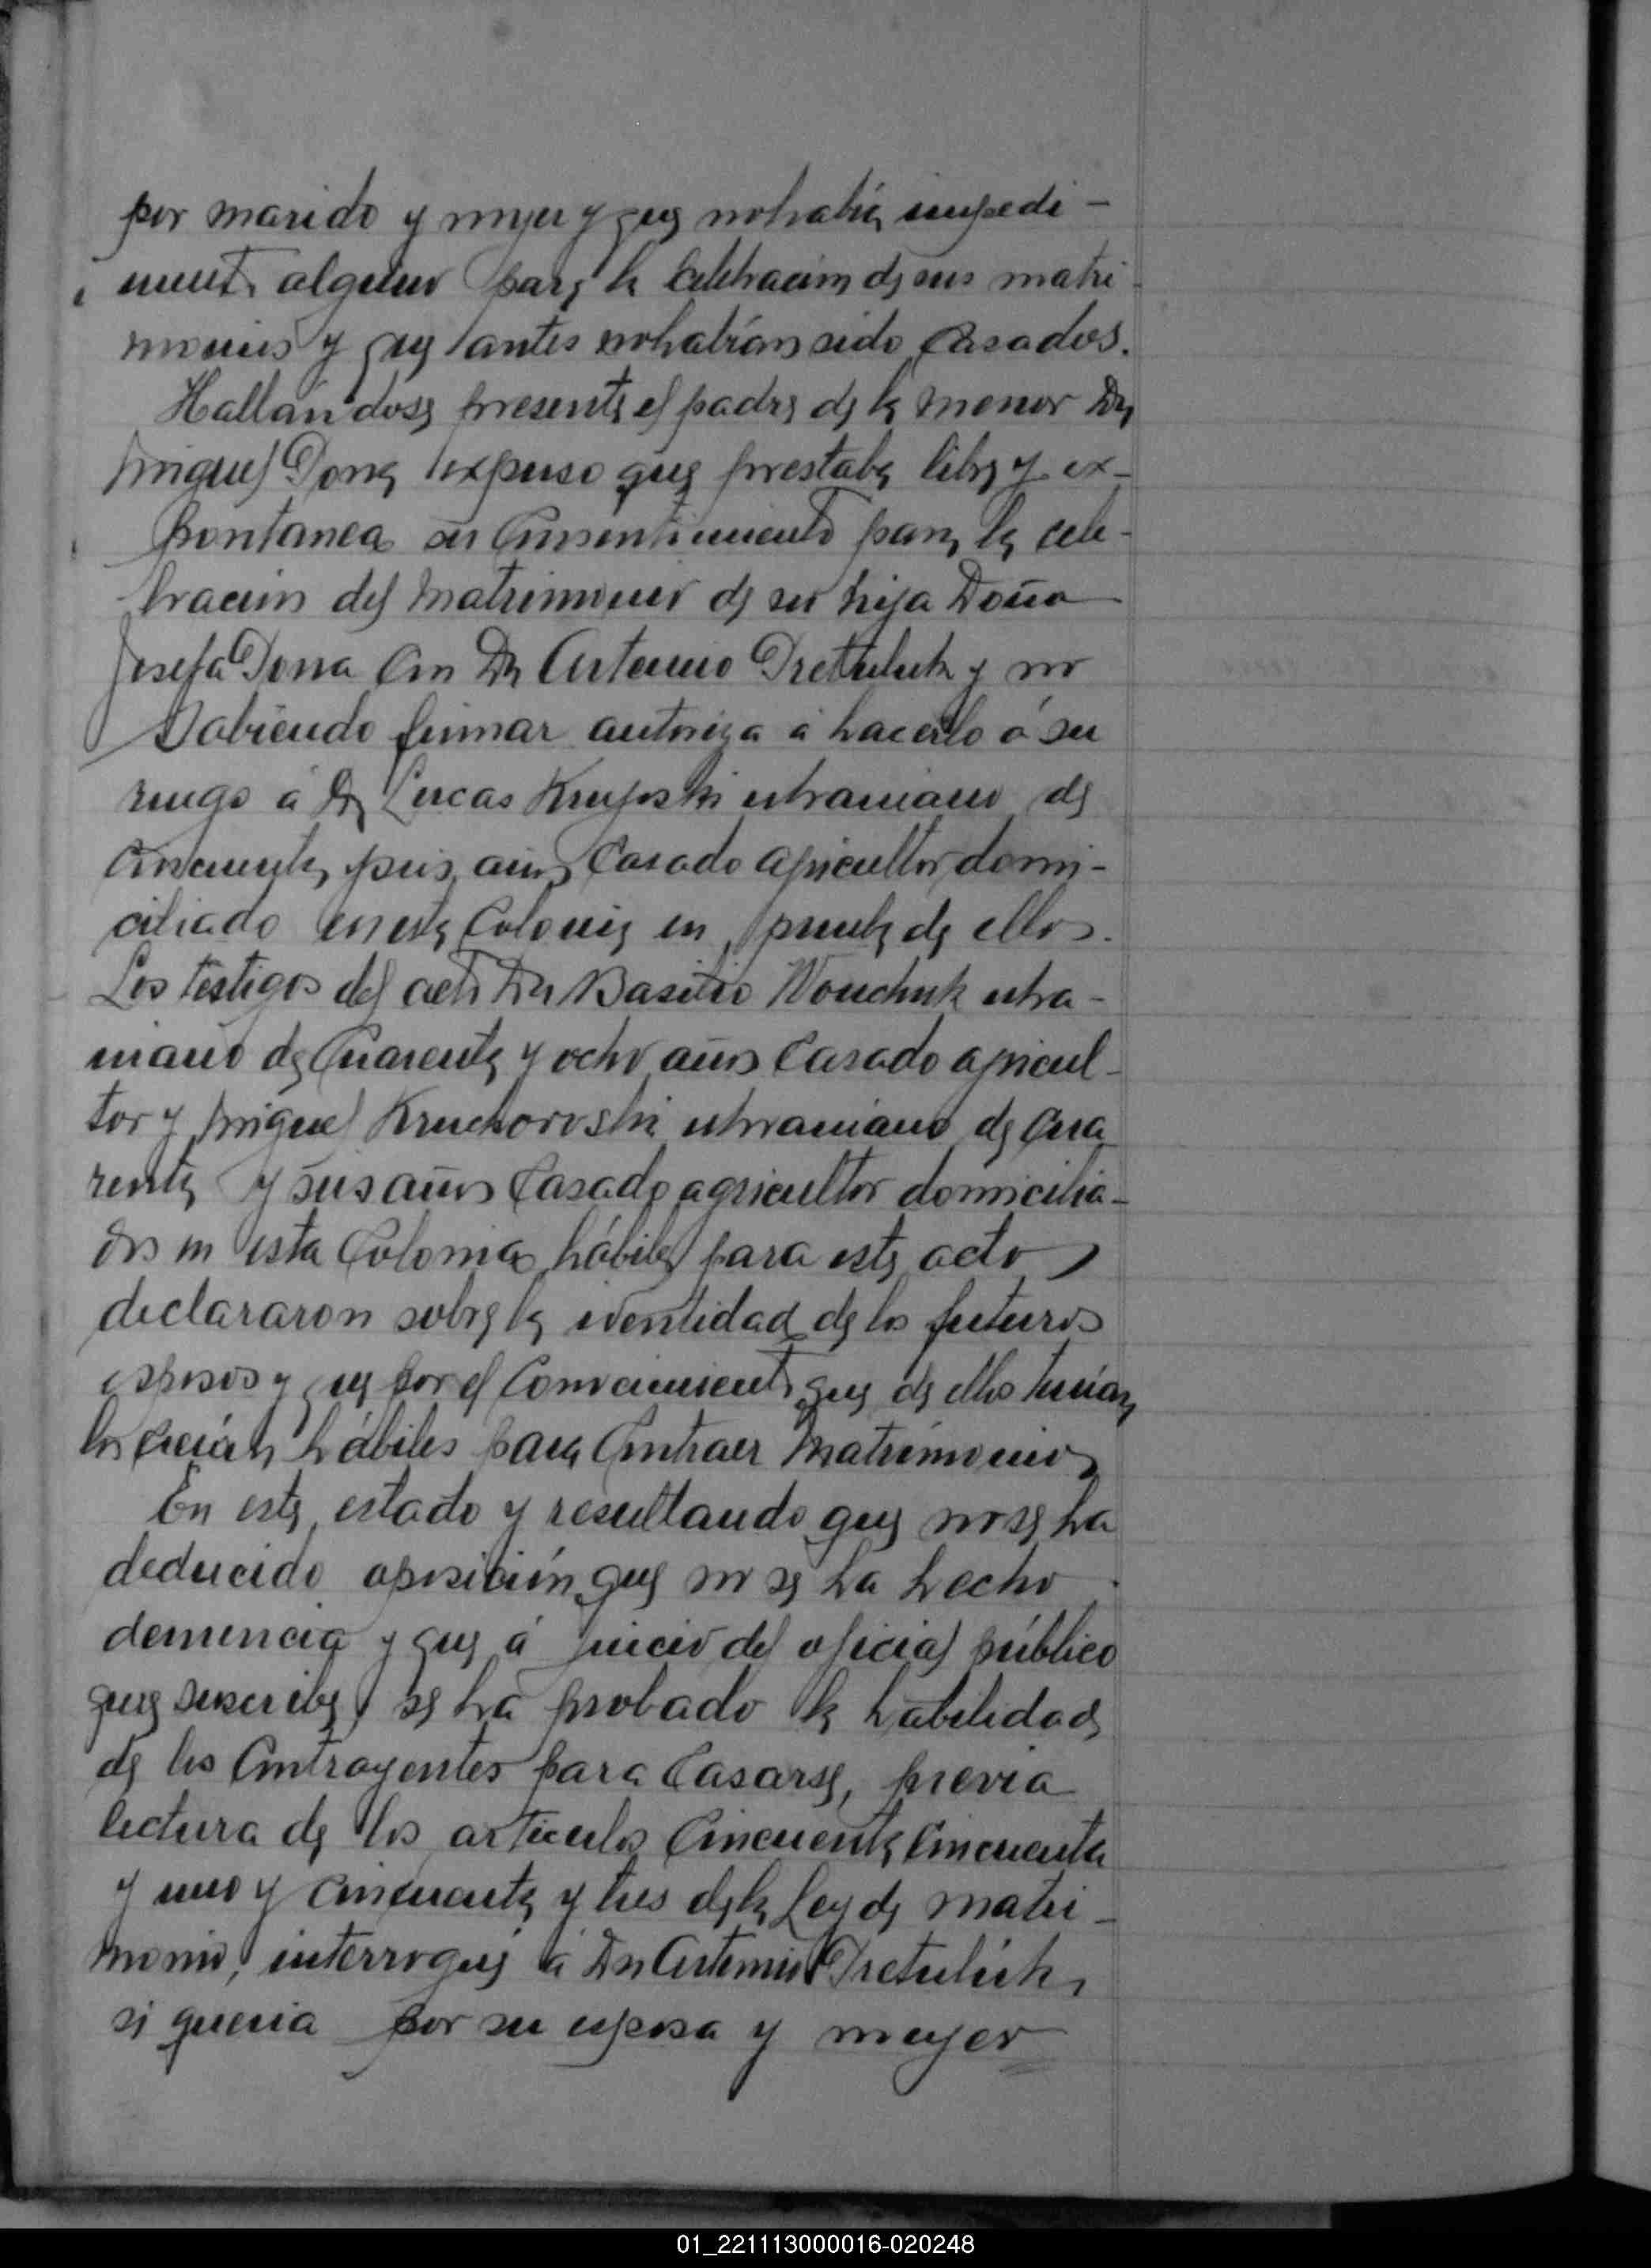 por marido y mujer y que no habia impedi-
mento alguno para la celebracion de sus matri-
monios y que antes no habían sido casados.
Hallandose presente el padre de la menor Dn
Miguel Dona expuso que prestaba libre y ex-
pontanea su consentimiento para la cele-
bracion del matrimonio de su hija Doña
Josefa Dona con Dn Artemio Dretuluk y no
sabiendo firmar autoriza á hacerlo á su
ruego á Dn Lucas ukraniano de
cincuenta y seis años casado agricultor domi-
ciliado en esta Colonia en prueba de ellos.
Los testigos del acto Dn Basilio Wouchuk ukra-
niano de cuarenta y ocho años casado agricul-
tor y Miguel Kruchoroski ukraniano de cua
renta y seis años casado agricultor domicilia-
dos en esta Colonia hábiles para este acto
declararon sobre la identidad de los futuros
esposos y que por el conocimiento que de ellos tenían
los creían hábiles para contraer matrimonio
En este estado y resultando que no se ha
deducido oposición que no se ha hecho
denuncia y que á juicio del oficial público
que suscribe, se ha probado la habilidad
de los contrayentes para casarse, previa
lectura de los articulos cincuenta cincuenta
y uno y cincuenta y tres de la Ley de matri-
monio, interrogué á Dn Artemio Dretulúk,
si queria por su esposa y mujer
01_221113000016-020248